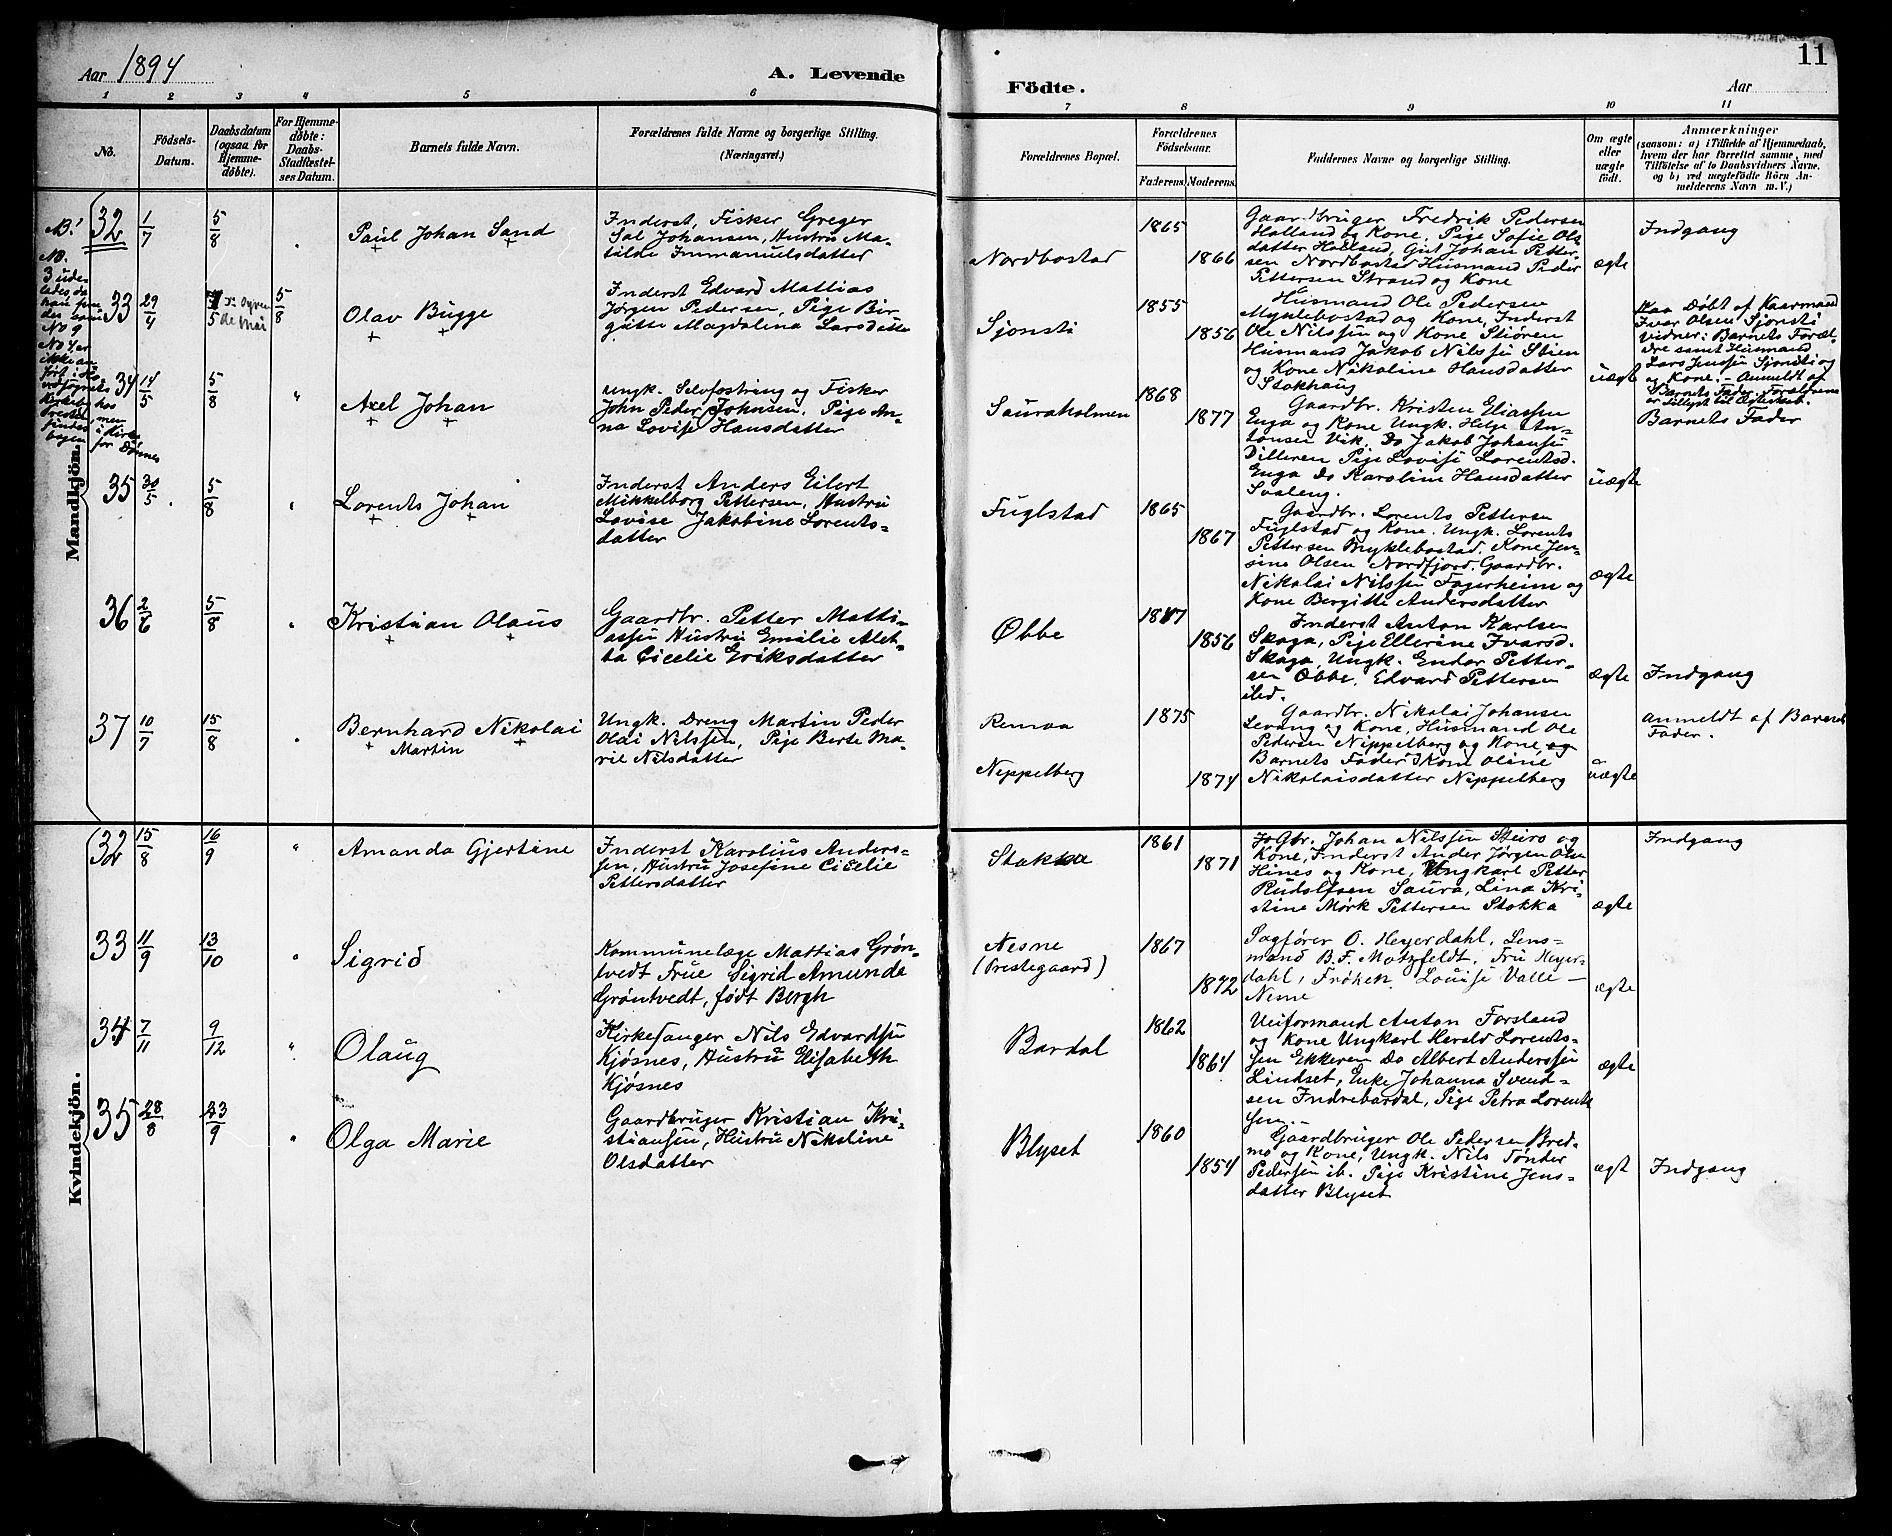 Aar 1894
A. Levende
Födte.
Aar
11
1 2 3 4 5 6 7 8 9 10 11
No.
Födsels-
Datum.
Daabsdatum
(ogsaa for
Hjemme-
döbte).
For Hjemme-
döbte:
Daabs-
Stadfæstel-
ses Datum.
Barnets fulde Navn.
Forældrenes fulde Navne og borgerlige Stilling.
(Næringsvei.)
Forældrenes Bopæl.
Forældrenes
Födselsaar.
Faderens. Moderens.
Faddernes Navne og borgerlige Stilling.
Om ægte
eller
uægte
födt.
Anmærkninger
(saasom: a) i Tilfælde af Hjemmedaab,
hvem der har forrettet samme, med
Tilföielse af to Daabsvidners Navne.
og b) ved uægtefödte Börn An-
melderens Navn m. V.)
Mandkjön.
32
1/7
5/8
Paul Johan Sand
Inderst, Fisker Greger
Sal Johansen, Hustru Ma-
tilde Immanuelsdatter
Nordbostad
1865
1866
Gaardbruger Fredrik Pedersen
Holland og Kone, Pige Sofie Ols-
datter Holland, Gut Johan Petter-
sen Nordbostad Husmand Peder
Pettersen Strand og Kone
ægte
Indgang
33
29/4
5/8
Olav Bugge
Inderst Edvard Mattias
Jørgen Pedersen, Pige Bir-
gitte Magdalena Larsdatter
Sjonsti
1855
1856
Husmand Ole Pedersen
Myklebostad og Kone, Inderst
Ole Nilssen og Kone Stiören
Husmand Jakob Nilssen Stien
og Kone Nikoline Hansdatter
Stokhaug
uægt
Døbt af Kaarmand
Ivar Olsen Sjonsti
Vidner: Barnets Foræl-
dre samt Husmand
Lars Jenssen Sjonsti og
Kone. – Anmeldt af
Barnets Fader. Forældrene
er tillyst til Ægteskab.
34
14/5
5/8
Axel Johan
Ungk. Selvfostring og Fisker
John Peder Johnsen, Pige An-
na Lovise Hansdatter
Sauraholmen
1868
1877
Gaardbr. Kristen Eliassen
Enga og Kone Ungk. Helge An-
tonsen Vik, Do Jakob Johansen
Dilleren Pige Lovise Lorentsd.
Enga Do Karoline Hansdatter
Svaleng.
uægte
Barnets Fader
35
30/5
5/8
Lorents Johan
Inderst Anders Eilert
Mikkelborg Pettersen, Hustru
Lovise Jakobine Lorents-
datter
Fuglstad
1865
1867
Gaardbr. Lorents Pettersen
Fuglstad og Kone. Ungk. Lorents
Pettersen Myklebostad. Kone Jen-
sine Olsen Nordfjord. Gaardbr.
Nikolai Nilssen Fagerheim og
Kone Bergitte Andersdatter
ægte
36
2/6
5/8
Kristian Olaus
Gaardbr. Petter Matti-
assen Hustru Emilie Alet-
ta Cicelie Eriksdatter
Øbbe
1847
1856
Inderst Anton Karlsen
Skaga, Pige Ellerine Ivarsd.
Skaga, Ungk. Endor Petter-
sen Øbbe. Edvard Pettersen
ibd.
ægte
Indgang
37
10/7
15/8
Bernhard Nikolai
Martin
Ungk. Dreng Martin Peder
Oldi Nilssen, Pige Berte Ma-
rie Nilsdatter
Remaa
Neppelberg
1875
1874
Gaardbr. Nikolai Johansen
Levang og Kone, Husmand Ole
Pedersen Nippelberg og Kone, og
Barnets Fader Kom Oline
Nikolaisdatter Nippelberg
uægte
Anmeldt af Barnets
Fader.
Kvindekjön.
32
15/8
16/9
Amanda Gjertine
Inderst Karolius Anders-
sen, Hustru Josefine Cicelie
Pettersdatter
Stokka
1861
1871
Gbr. Johan Nilssen Steiro og
Kone, Inderst Ander Jørgen Olsen
Hines og Kone, Ungkarl Petter
Rudolfsen Saura, Lina Kri-
stine Mørk Pettersen Stokka
ægte
Indgang
33
11/9
13/10
Sigrid
Kommunelæge Mattias Grøn-
tvedt Frue Sigrid Amunda
Grøntvedt, født Bergh
Nesne
(Prestegaard)
1867
1872
Sagfører O. Heyerdahl, Lens-
mand B. F. Motzfeldt, Fru Heyer-
dahl, Frøken Louise Valle –
Nesne
ægte
34
7/11
9/12
Olaug
Kirkesanger Nils Edvardsen
Kjøsnes, Hustru Elisabeth
Kjøsnes
Bardal
1862
1864
Uniformand Anton Forsland
og Kone Ungkarl Harald Lorents-
sen Ekkeren Do Albert Anderssen
Lindset, Enke Johanna Svend-
sen Indrebardal, Pige Petra Lorents
sen.–
ægte
35
28/8
23/9
Olga Marie
Gaardbruger Kristian Kri-
stiansen, Hustru Nikoline
Olsdatter
Blyset
1860
1854
Gaardbruger Ole Pedersen Bred-
mo og Kone, Ungk. Nils Tønder
Pedersen ib. Pige Kristine Jens-
datter Blyset
ægt
Indgang